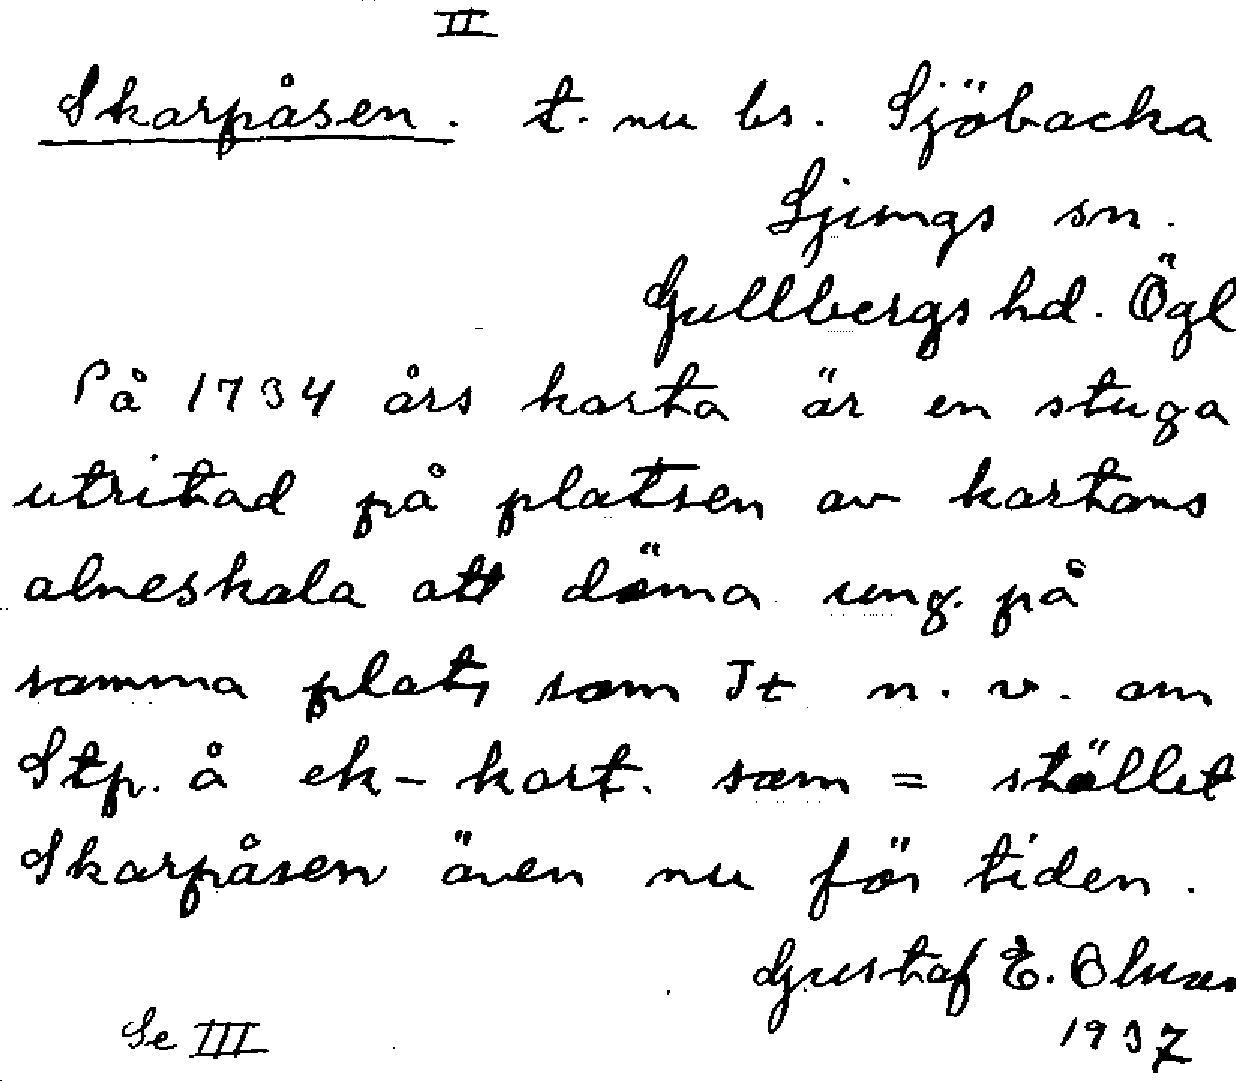 II
Skarpåsen. t. nu bs. Sjöbacka
Ljungs sn.
Gullbergs hd. Ögl
På 1734 års karta är en stuga
utritad på platsen av kartans
alneskala att döma ung. på
samma plats som It n. v. om
Stp. å ek-kart. som = stället
Skarpåsen även nu för tiden.
Gustaf E.
1937
Se III